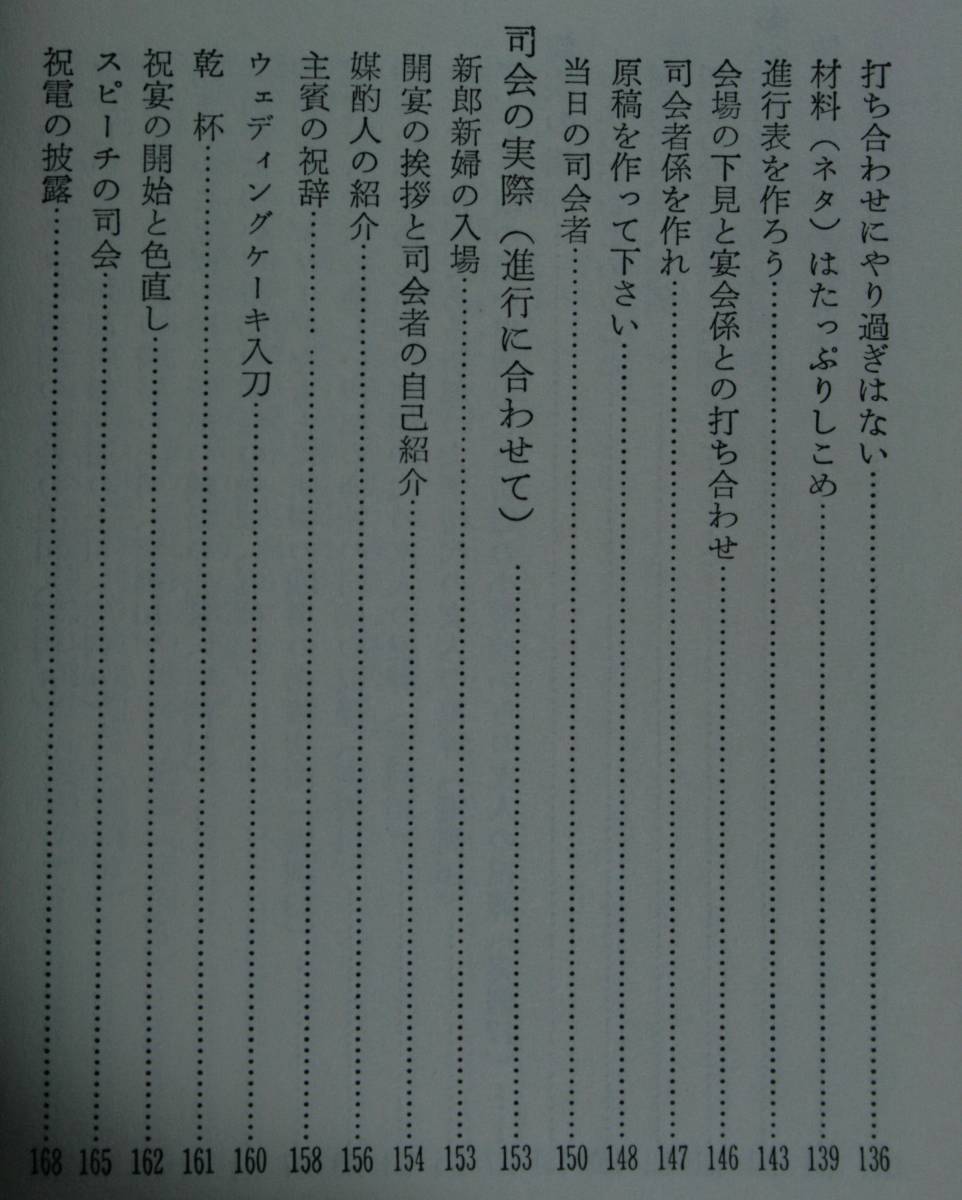 打ち合わせにやり過ぎはない……………………136
材料（ネタ）はたっぷりしこめ……………………139
進行表を作ろう……………………143
会場の下見と宴会係との打ち合わせ……………………146
司会者係を作れ……………………147
原稿を作って下さい……………………148
当日の司会者……………………150
司会の実際（進行に合わせて）……………………153
新郎新婦の入場……………………153
開宴の挨拶と司会者の自己紹介……………………154
媒酌人の紹介……………………156
主賓の祝辞……………………158
ウェディングケーキ入刀……………………160
乾　杯……………………161
祝宴の開始と色直し……………………162
スピーチの司会……………………165
祝電の披露……………………168